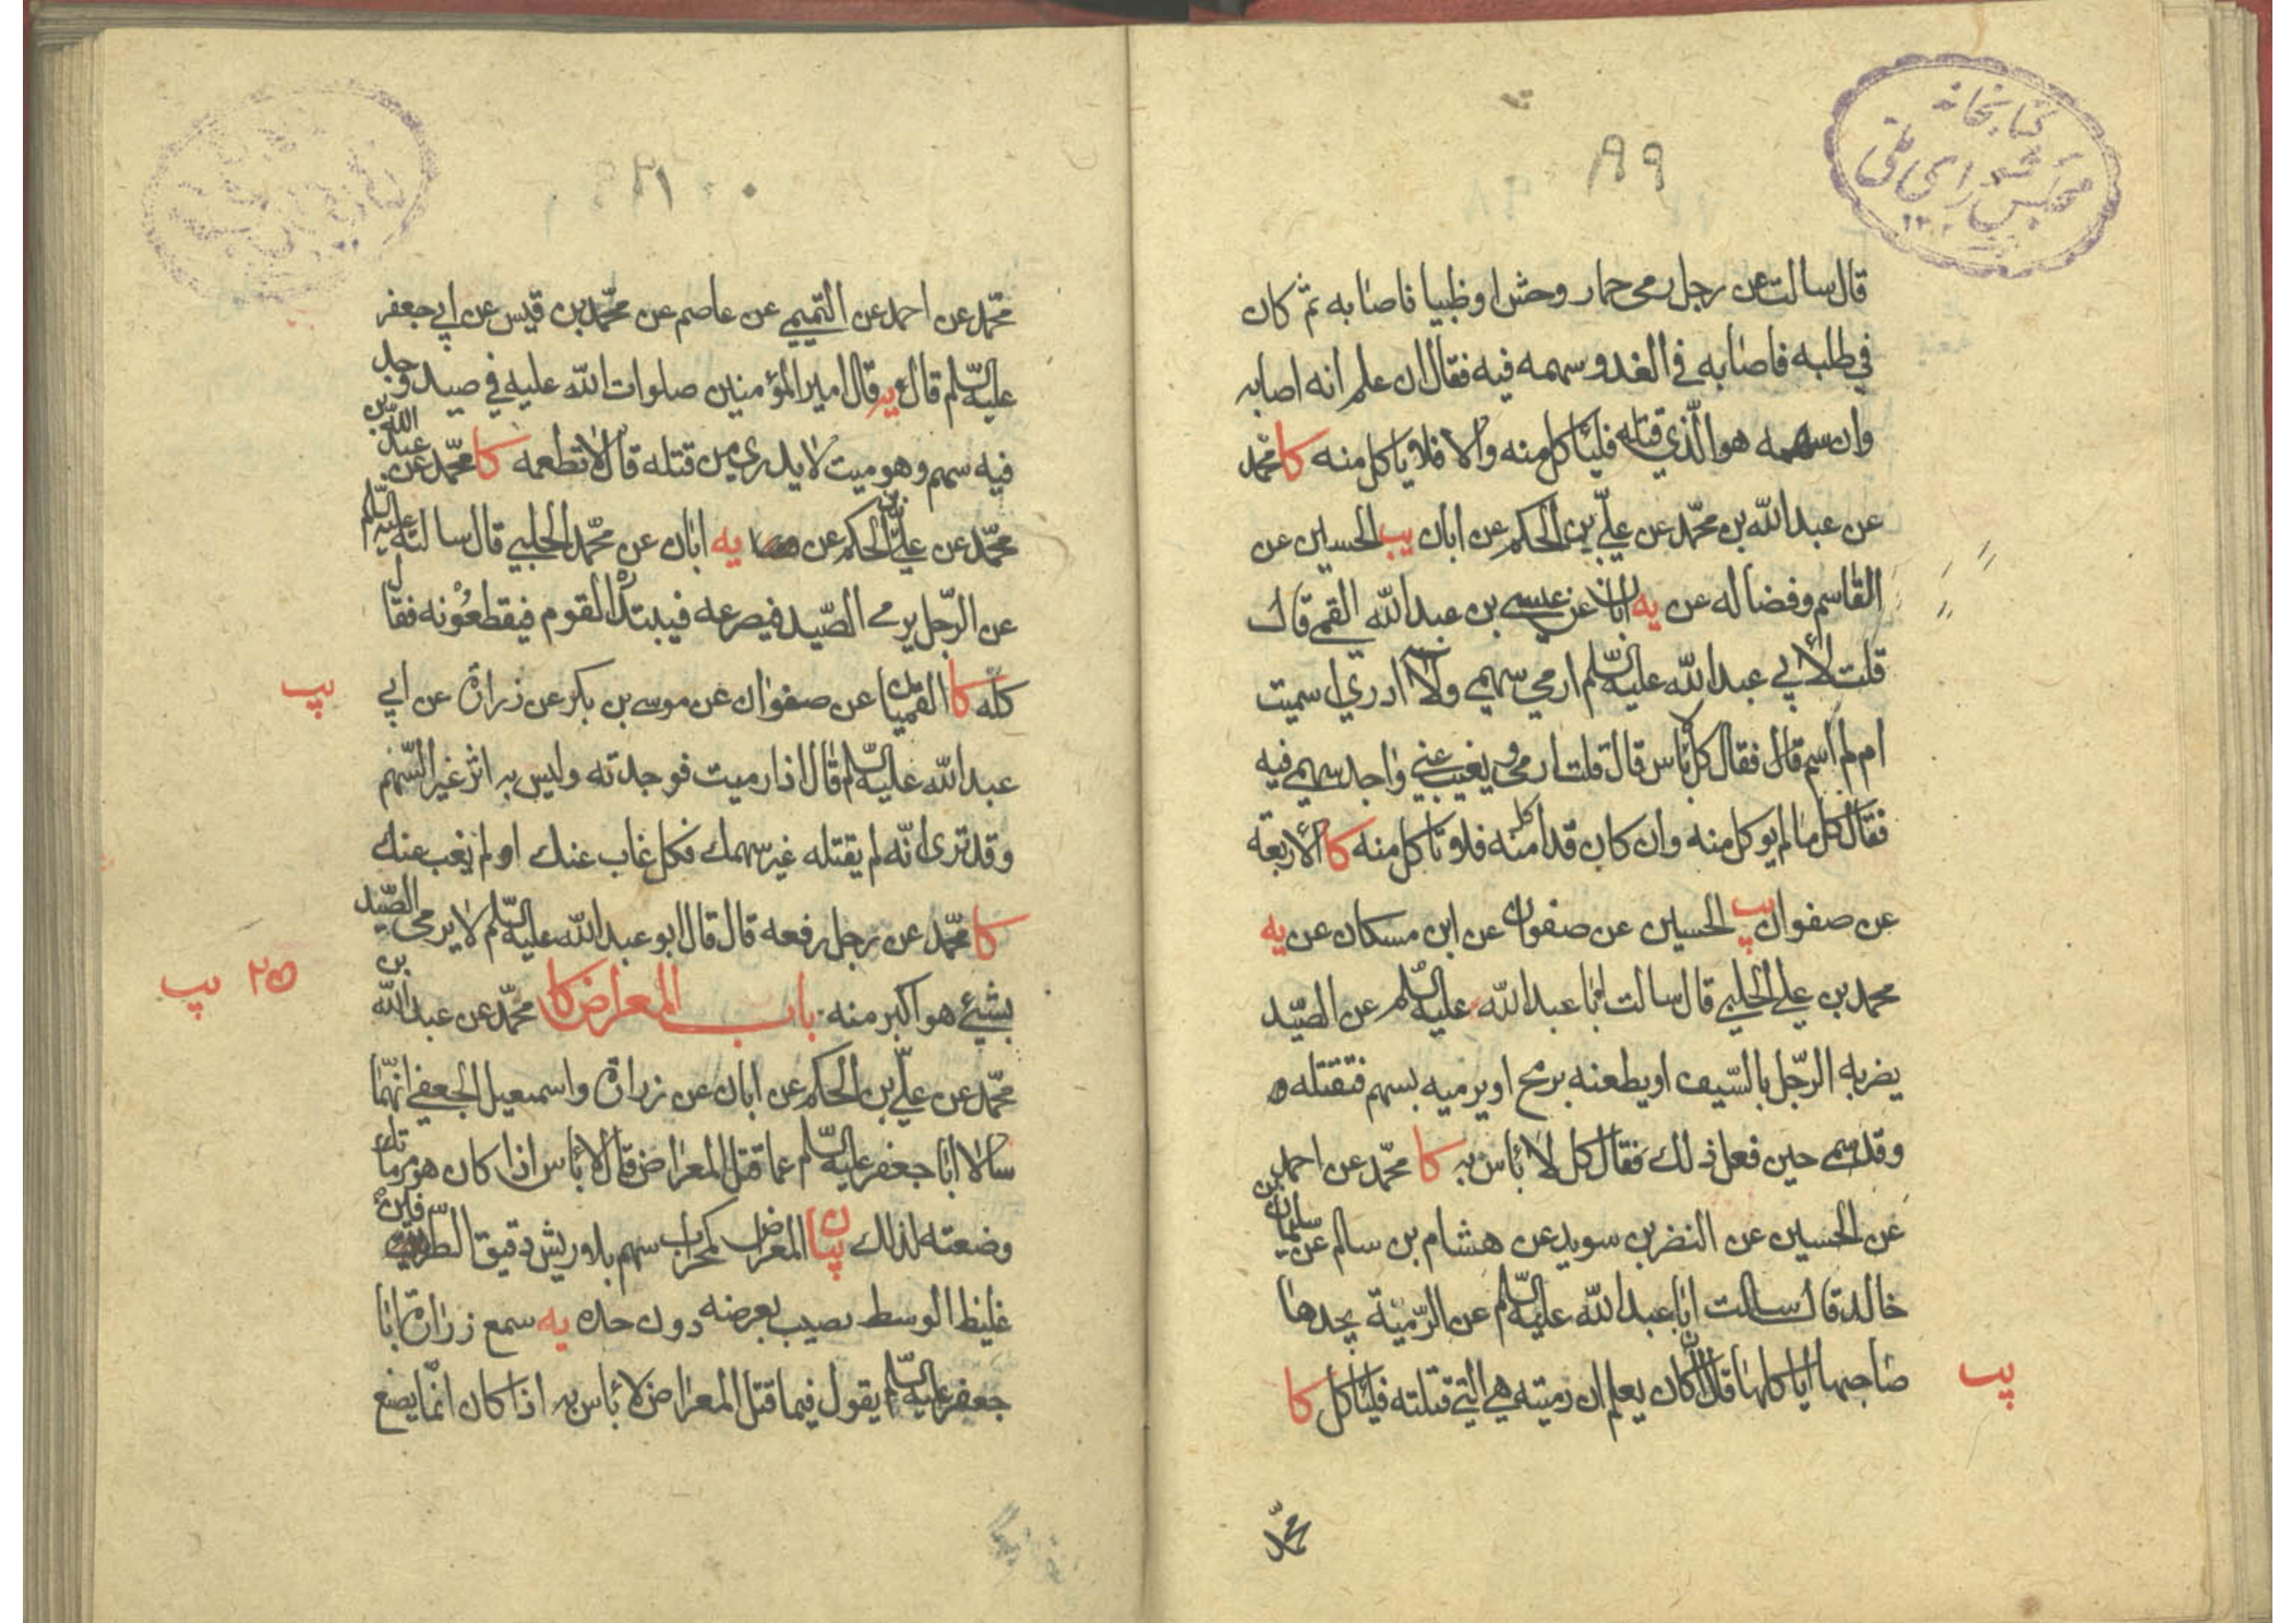 كتابخانه
مجلس شوراي ملى
١٣٠٢
٨٩٩
قال سالت عن رجل رمى حمار وحش او ظبيا فاصابه ثم كان
في طلبه فاصابه في الغد و سهمه فيه فقال ان علم انه اصابه
وان سهمه هو الّذي قتله فليأكل منه والا فلا ياكل منه كا محمّد
عن عبد اللّه بن محمّد عن عليّ بن الحكم عن ابان يب الحسين عن
القاسم وفضاله عن يه ابان عن عيسى بن عبد اللّه القمي قال
قلت لأبي عبد اللّه عليه السّلم ارمي سهمي ولا ادري اسميت
ام لم اسم قال فقال كل لا بأس قال قلت ارمي و يغيب عني واجد سهمي فيه
فقال كل ما لم يوكل منه وان كان قد اكل منه فلا تأكل منه كا الأربعة
عن صفوان يب الحسين عن صفوان عن ابن مسكان عن يه
محمد بن علي الحلبي قال سالت ابا عبد اللّه عليه السّلم عن الصّيد
يضربه الرّجل بالسّيف او يطعنه برمح او يرميه بسهم فتقتله
وقد سمى حين فعل ذلك فقال كل لا بأس به كا محمّد عن احمد بن
عن الحسين عن النضر بن سويد عن هشام بن سالم عن سليمان
خالد قال سالت ابا عبد اللّه عليه السّلم عن الرّمية يجدها
صاحبها اياكلها قال ان كان يعلم ان رميته هي التي قتلته فليأكل كا
يب
محمّد
محمّد عن احمد عن التميمي عن عاصم عن محمّد بن قيس عن ابي جعفر
عليه السّلم قال يه قال امير المؤمنين صلوات اللّه عليه في صيد وجد
فيه سهم وهو ميت لا يدري من قتله قال لا تطعمه كا محمّد عن عبد اللّه بن
محمّد عن عليّ بن الحكم عن يه ابان عن محمّد الحلبي قال سالته عليه السّلم
عن الرّجل يرمي الصّيد فيصرعه فيبتدره القوم فيقطعونه فقال
كله كا القميان عن صفوان عن موسى بن بكر عن زرارة عن ابي
يب
عبد اللّه عليه السّلم قال اذا رميت فوجدته وليس به اثر غير السّهم
وقد ترى انّه لم يقتله غير سهمك فكل غاب عنك او لم يغب عنك
كا محمّد عن رجل رفعه قال قال ابو عبد اللّه عليه السّلم لا يرمى الصّيد
بشئ هو اكبر منه باب المعراض كا محمّد عن عبد اللّه بن
يب
محمّد عن عليّ بن الحكم عن ابان عن زرارة واسمعيل الجعفي انّهما
سالا ابا جعفر عليه السّلم عما قتل المعراض قال لا بأس اذا كان هو مرماتك
وضعته لذلك بيان المعراض كمحراب سهم بلا ريش دقيق الطّرفين
غليظ الوسط يصيب بعرضه دون حده يه سمع زرارة ابا
جعفر عليه السّلم يقول فيما قتل المعراض لا بأس به اذا كان انّما يصنع